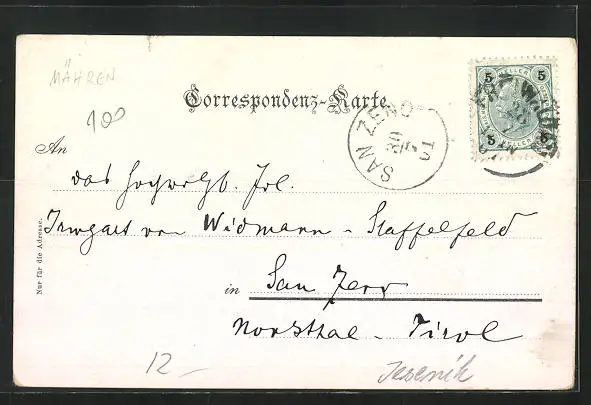 MÄHREN
Correspondenz-Karte.
5 HELLER 5
5 HELLER 5
SAN ZENO
30
7
01
An
das Hochwohlgb. Frl.
Irmgart von Widmann - Staffelfeld
in San Zeno
Nonsthal - Tirol
Nur für die Adresse.
12 -
Jesenik